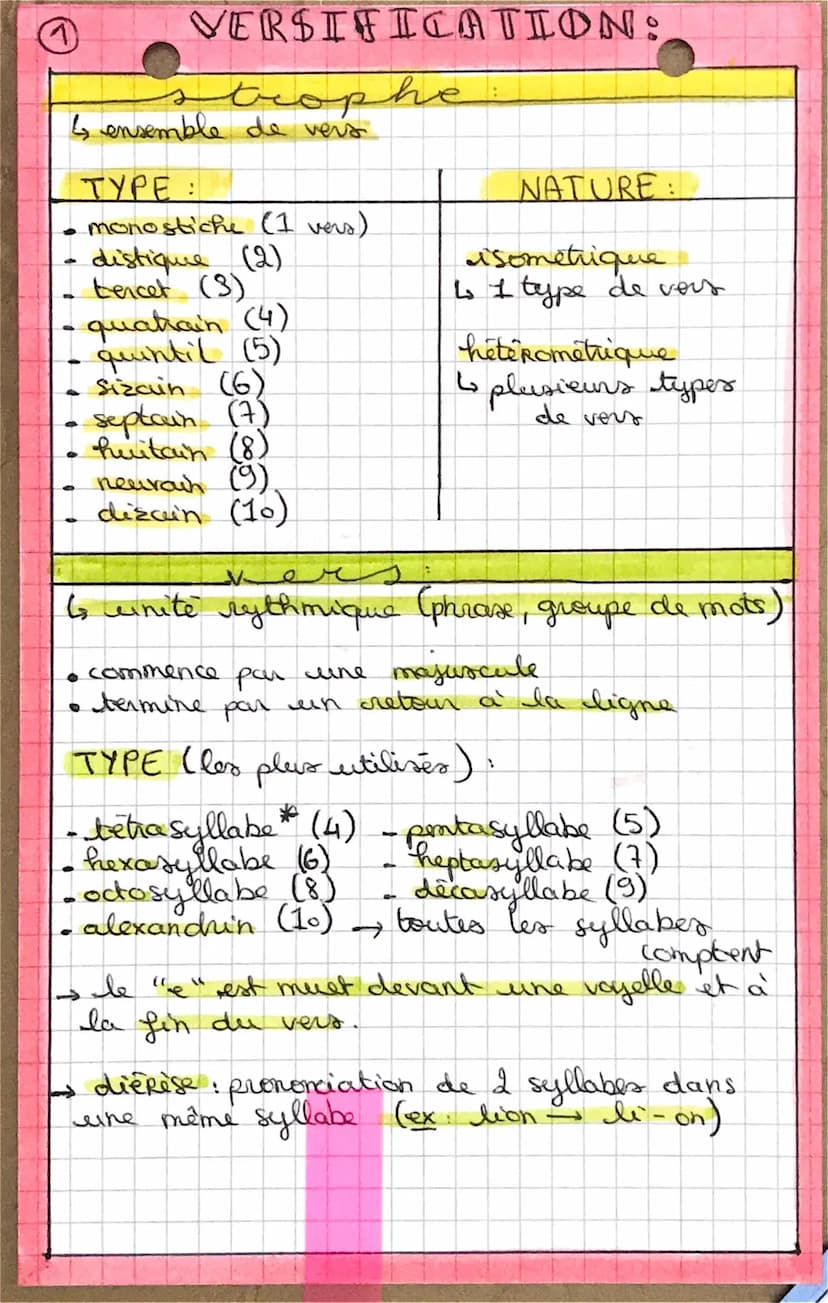 1
VERSIFICATION:
strophe:
↳ ensemble de vers
TYPE :
• monostiche (1 vers)
- distique (2)
- tercet (3)
- quatrain (4)
- quintil (5)
• sizain (6)
• septain (7)
• huitain (8)
• neuvain (9)
• dizain (10)
NATURE :
isométrique
↳ 1 type de vers
hétérométrique
↳ plusieurs types
de vers
vers:
↳ unité rythmique (phrase, groupe de mots)
• commence par une majuscule
• termine par un retour à la ligne
TYPE (les plus utilisés) :
- tétrasyllabe* (4) - pentasyllabe (5)
• hexasyllabe (6) - heptasyllabe (7)
- octosyllabe (8) - décasyllabe (9)
• alexandrin (10) → toutes les syllabes
comptent
→ le "e" est muet devant une voyelle et à
la fin du vers.
→ diérèse : prononciation de 2 syllabes dans
une même syllabe (ex : lion → li-on)